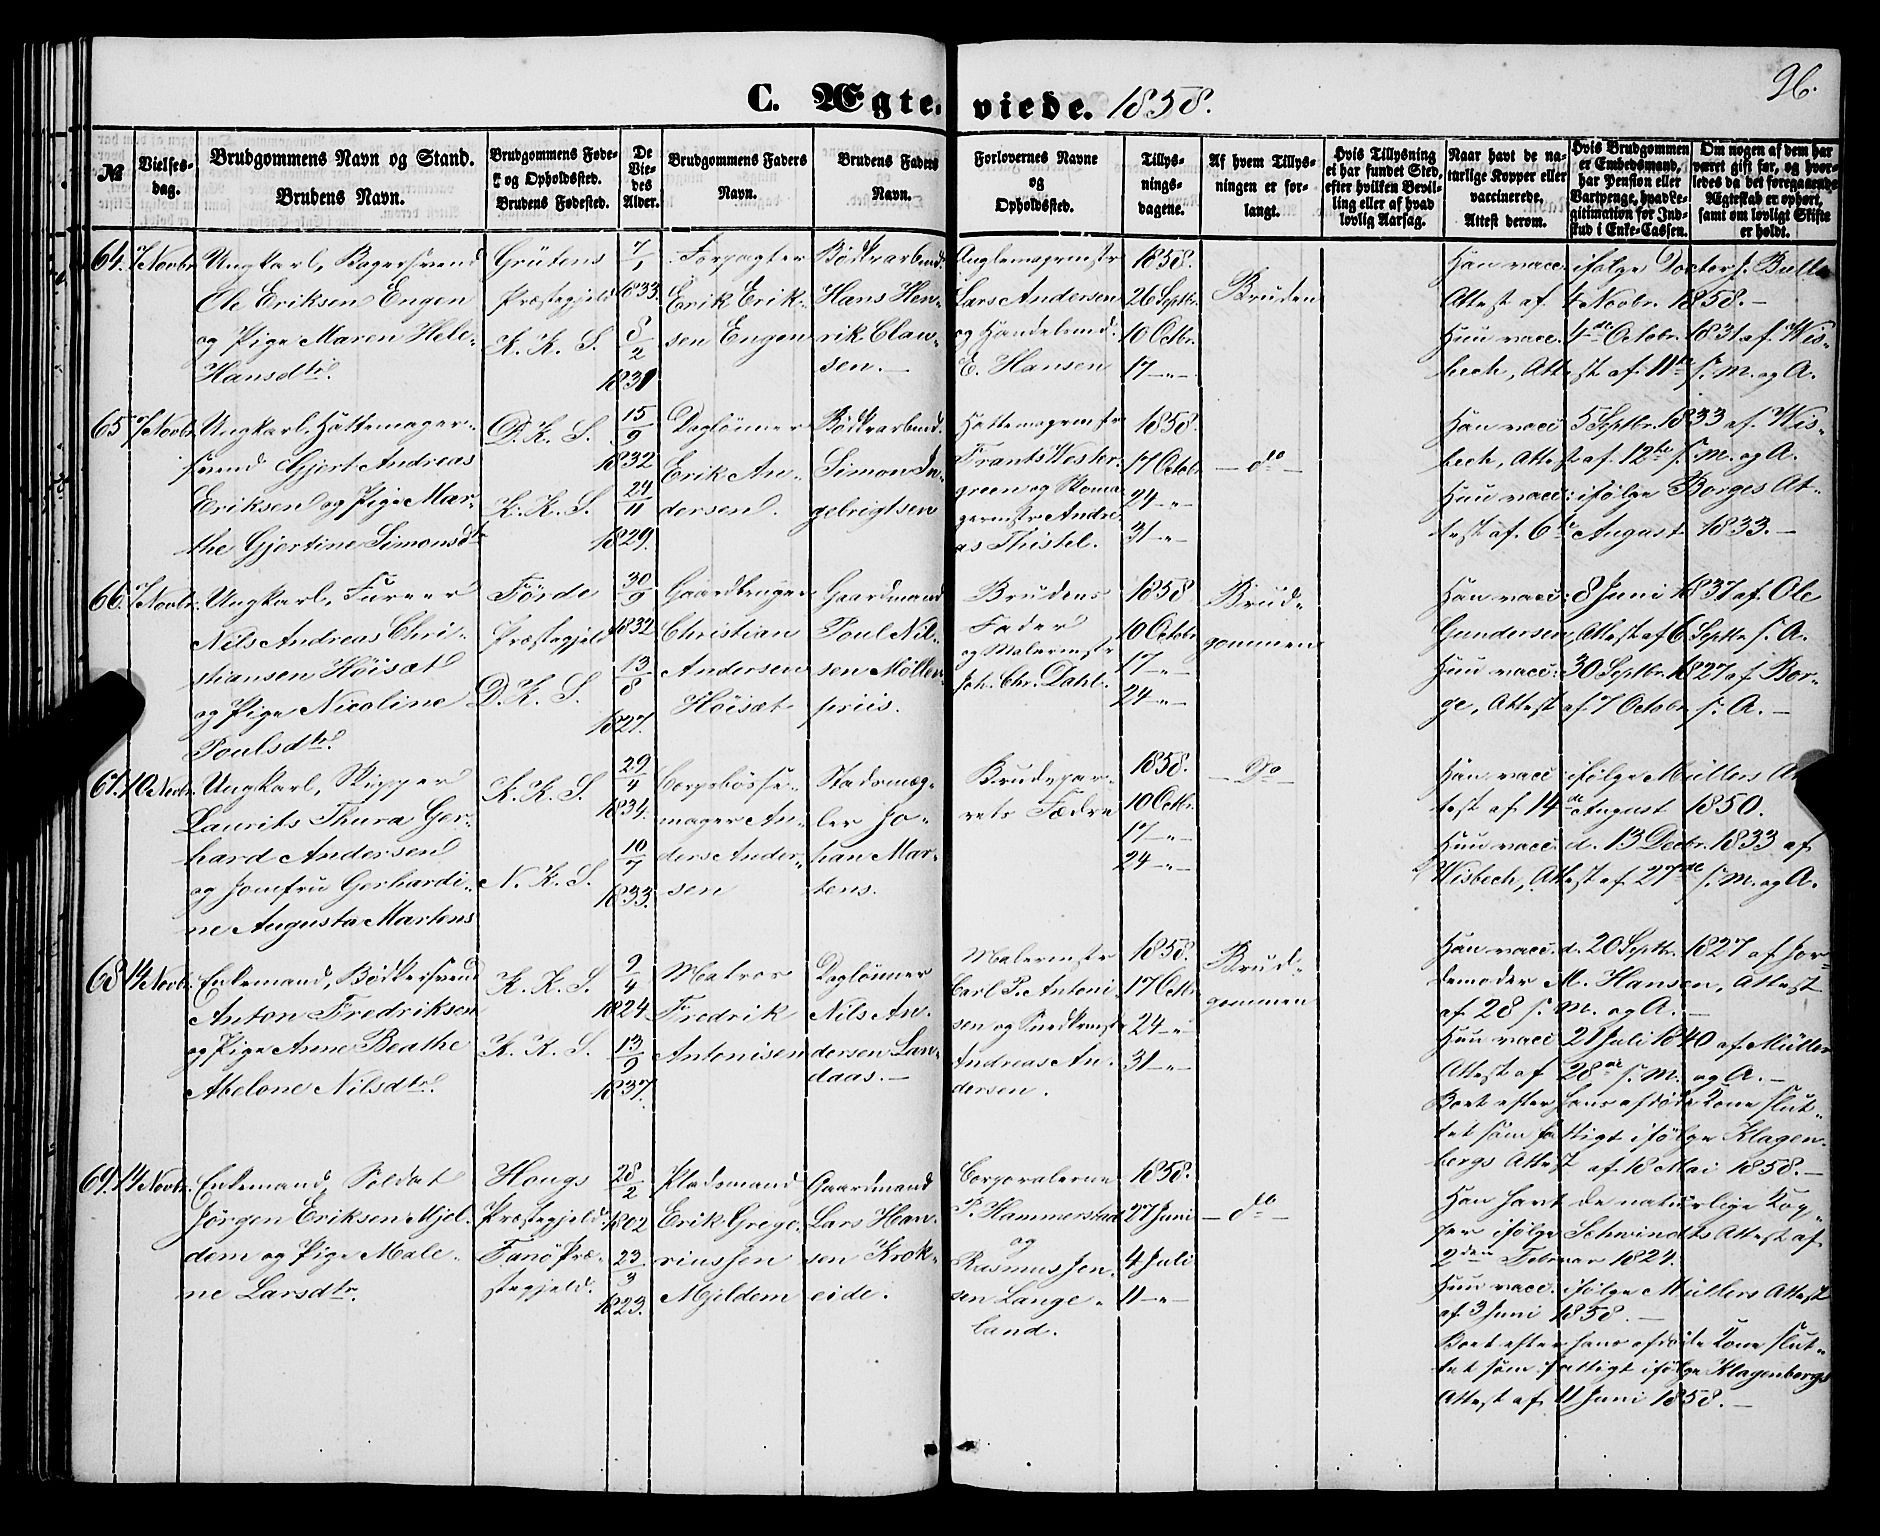 96.
C. Ægteviede. 1858.
№
Vielses-
dag.
Brudgommens Navn og Stand.
Brudens Navn.
Brudgommens Føde-
og Opholdssted.
Brudens Fødested.
De
Vie-
des
Alder.
Brudgommens Faders
Navn.
Brudens Faders
Navn.
Forlovernes Navne
og
Opholdssted.
Tillys-
nings-
dagene.
Af hvem Tillys-
ningen er for-
langt.
Hvis Tillysning
ei har fundet Sted,
efter hvilken Bevil-
ling eller af hvad
lovlig Aarsag.
Naar havt de na-
turlige Kopper eller
vaccinerede,
Attest derom.
Hvis Brudgommen
er Embedsmand,
har Pension eller
Vartpenge, hvad Le-
gitimation for Ind-
skud i Enke-Cassen.
Om nogen af dem har
været gift før, og hvor-
ledes da det foregaaende
Ægteskab er ophørt,
samt om lovligt Skifte
er holdt.
64. 7 Novbr.
Ungkarl, Bagersvend
Ole Eriksen Engen
og Pige Maren Hele-
Hansdtr.
Grütens
Præstegjeld
K. K. S.
7/1
1833.
8/2
1831
Forpagter
Erik Erik-
sen Engen
Bødkerarbmd.
Hans Hen-
rik Clau-
sen.
Lars Andersen
og Handelsmd.
E. Hansen
1858.
26 Septbr.
10 Octbr.
17 -"-
Bruden
Han vacc. ifølge Doctor J. Bulls
Attest af 4 Novbr. 1858. —
Hun vacc. 4de Octobr. 1831 af Wis-
bech, Attest af 11te s. M. og A.
65 7 Novbr.
Ungkarl, Hattemager-
svend Gjert Andreas
Eriksen og Pige Mar-
the Gjertine Simonsdtr
D. K. S.
K. K. S.
15/9
1832
24/11
1829.
Daglønner
Erik An-
dersen.
Bødkerarbmd.
Simon In-
gebrigtsen
Hattemagermstr
Frants Wester-
green og Skoma-
germstr Andre-
as Thistel.
1858.
17 Octobr.
24 -"-
31 -"-
— do —
Han vacc. 5 Septbr. 1833 af Wis-
bech, Attest af 12te s. M. og A.
Hun vacc: ifølge Borges At-
test af 6te August 1833. —
66. 7 Novbr.
Ungkarl, Furer
Nils Andreas Chri-
stiansen Höisæt
og Pige Nicoline
Poulsdtr.
Förde
Præstegjeld
D. K. S.
30/9
1832
13/8
1827.
Gaardbruger
Christian
Andersen
Höisæt
Gaardmand
Poul Nil-
sen Möllen-
priis.
Brudens
Fader
og Malermstr
Joh. Chr. Dahl.
1858
10 Octobr.
17 -"-
24 -"-
Brud-
gommen
Han vacc: 8 Juni 1837 af Ole
Gundersen, Attest af 6 Septbr s. A.
Hun vacc: 30 Septbr. 1827 af Bor-
ge, Attest af 7 Octobr. s. A. —
67. 10 Novbr.
Ungkarl, Skipper
Laurits Thura Ger-
hard Andersen
og Jomfru Gerhardi-
ne Augusta Martens
K. K. S.
N. K. S.
29/4
1834.
10/7
1833.
Corpsbösse-
mager An-
ders Ander-
sen
Stadsmæg-
ler Jo-
han Mar-
tens.
Brudepar-
rets Fædre
1858.
10 Octbr.
17 -"-
24 -"-
— Do —
Han vacc: ifølge Müllers At-
test af 14de August 1850.
Hun vacc. d. 13 Decbr. 1833 af
Wisbech, Attest af 27de s. M. og A.
68 14 Novbr.
Enkemand, Bödkersvend
Anton Fredriksen
og Pige Anne Beathe
Abelone Nilsdtr.
K. K. S.
K. K. S.
9/4
1824
13/9
1837.
Matros
Fredrik
Antonisen
Daglönner
Nils An-
dersen Lan-
daas. —
Malermstr
Carl P. Antoni-
sen og Snedkermstr
Andreas An-
dersen.
1858.
17 Octbr
24 -"-
31 -"-
Brud-
gommen
Han vacc. d. 20 Septbr. 1827 af Jor-
demoder M. Hansen, Attest
af 28 s. M. og A. —
Hun vacc. 21 Juli 1840 af Müller
Attest af 28de s. M. og A. —
Boet efter hans afdøde Kone slut-
tet som fattigt ifølge Klagen-
bergs Attest af 18 Mai 1858. —
69. 14 Novbr.
Enkemand, Soldat
Jörgen Eriksen Mjel-
dem og Pige Male-
ne Larsdtr.
Hougs
Præstegjeld.
Fanö Præ-
stegjeld.
28/2
1802
23/3
1823.
Pladsmand
Erik Grego-
riussen
Mjeldem
Gaardmand
Lars Han-
sen Krok-
eide.
Corporalerne
P. Hammerstad
og
Rasmus Jen-
sen Lange-
land.
1858.
27 Juni
4 Juli
11 -"-
— do —
Han havt de naturlige Kop-
per ifølge Schwindts Attest af
2den Februar 1824.
Hun vacc. ifølge Müllers Attest
af 3 Juni 1858. —
Boet efter hans afdøde Kone slut-
tet som fattigt ifølge Klagenbergs
Attest af 11 Juni 1858. —